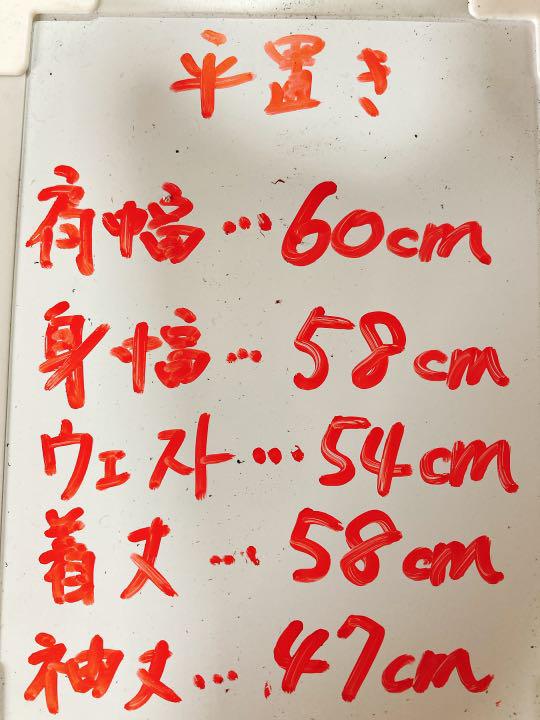 平置き
肩幅…60cm
身幅…58cm
ウェスト…54cm
着丈…58cm
袖丈…47cm